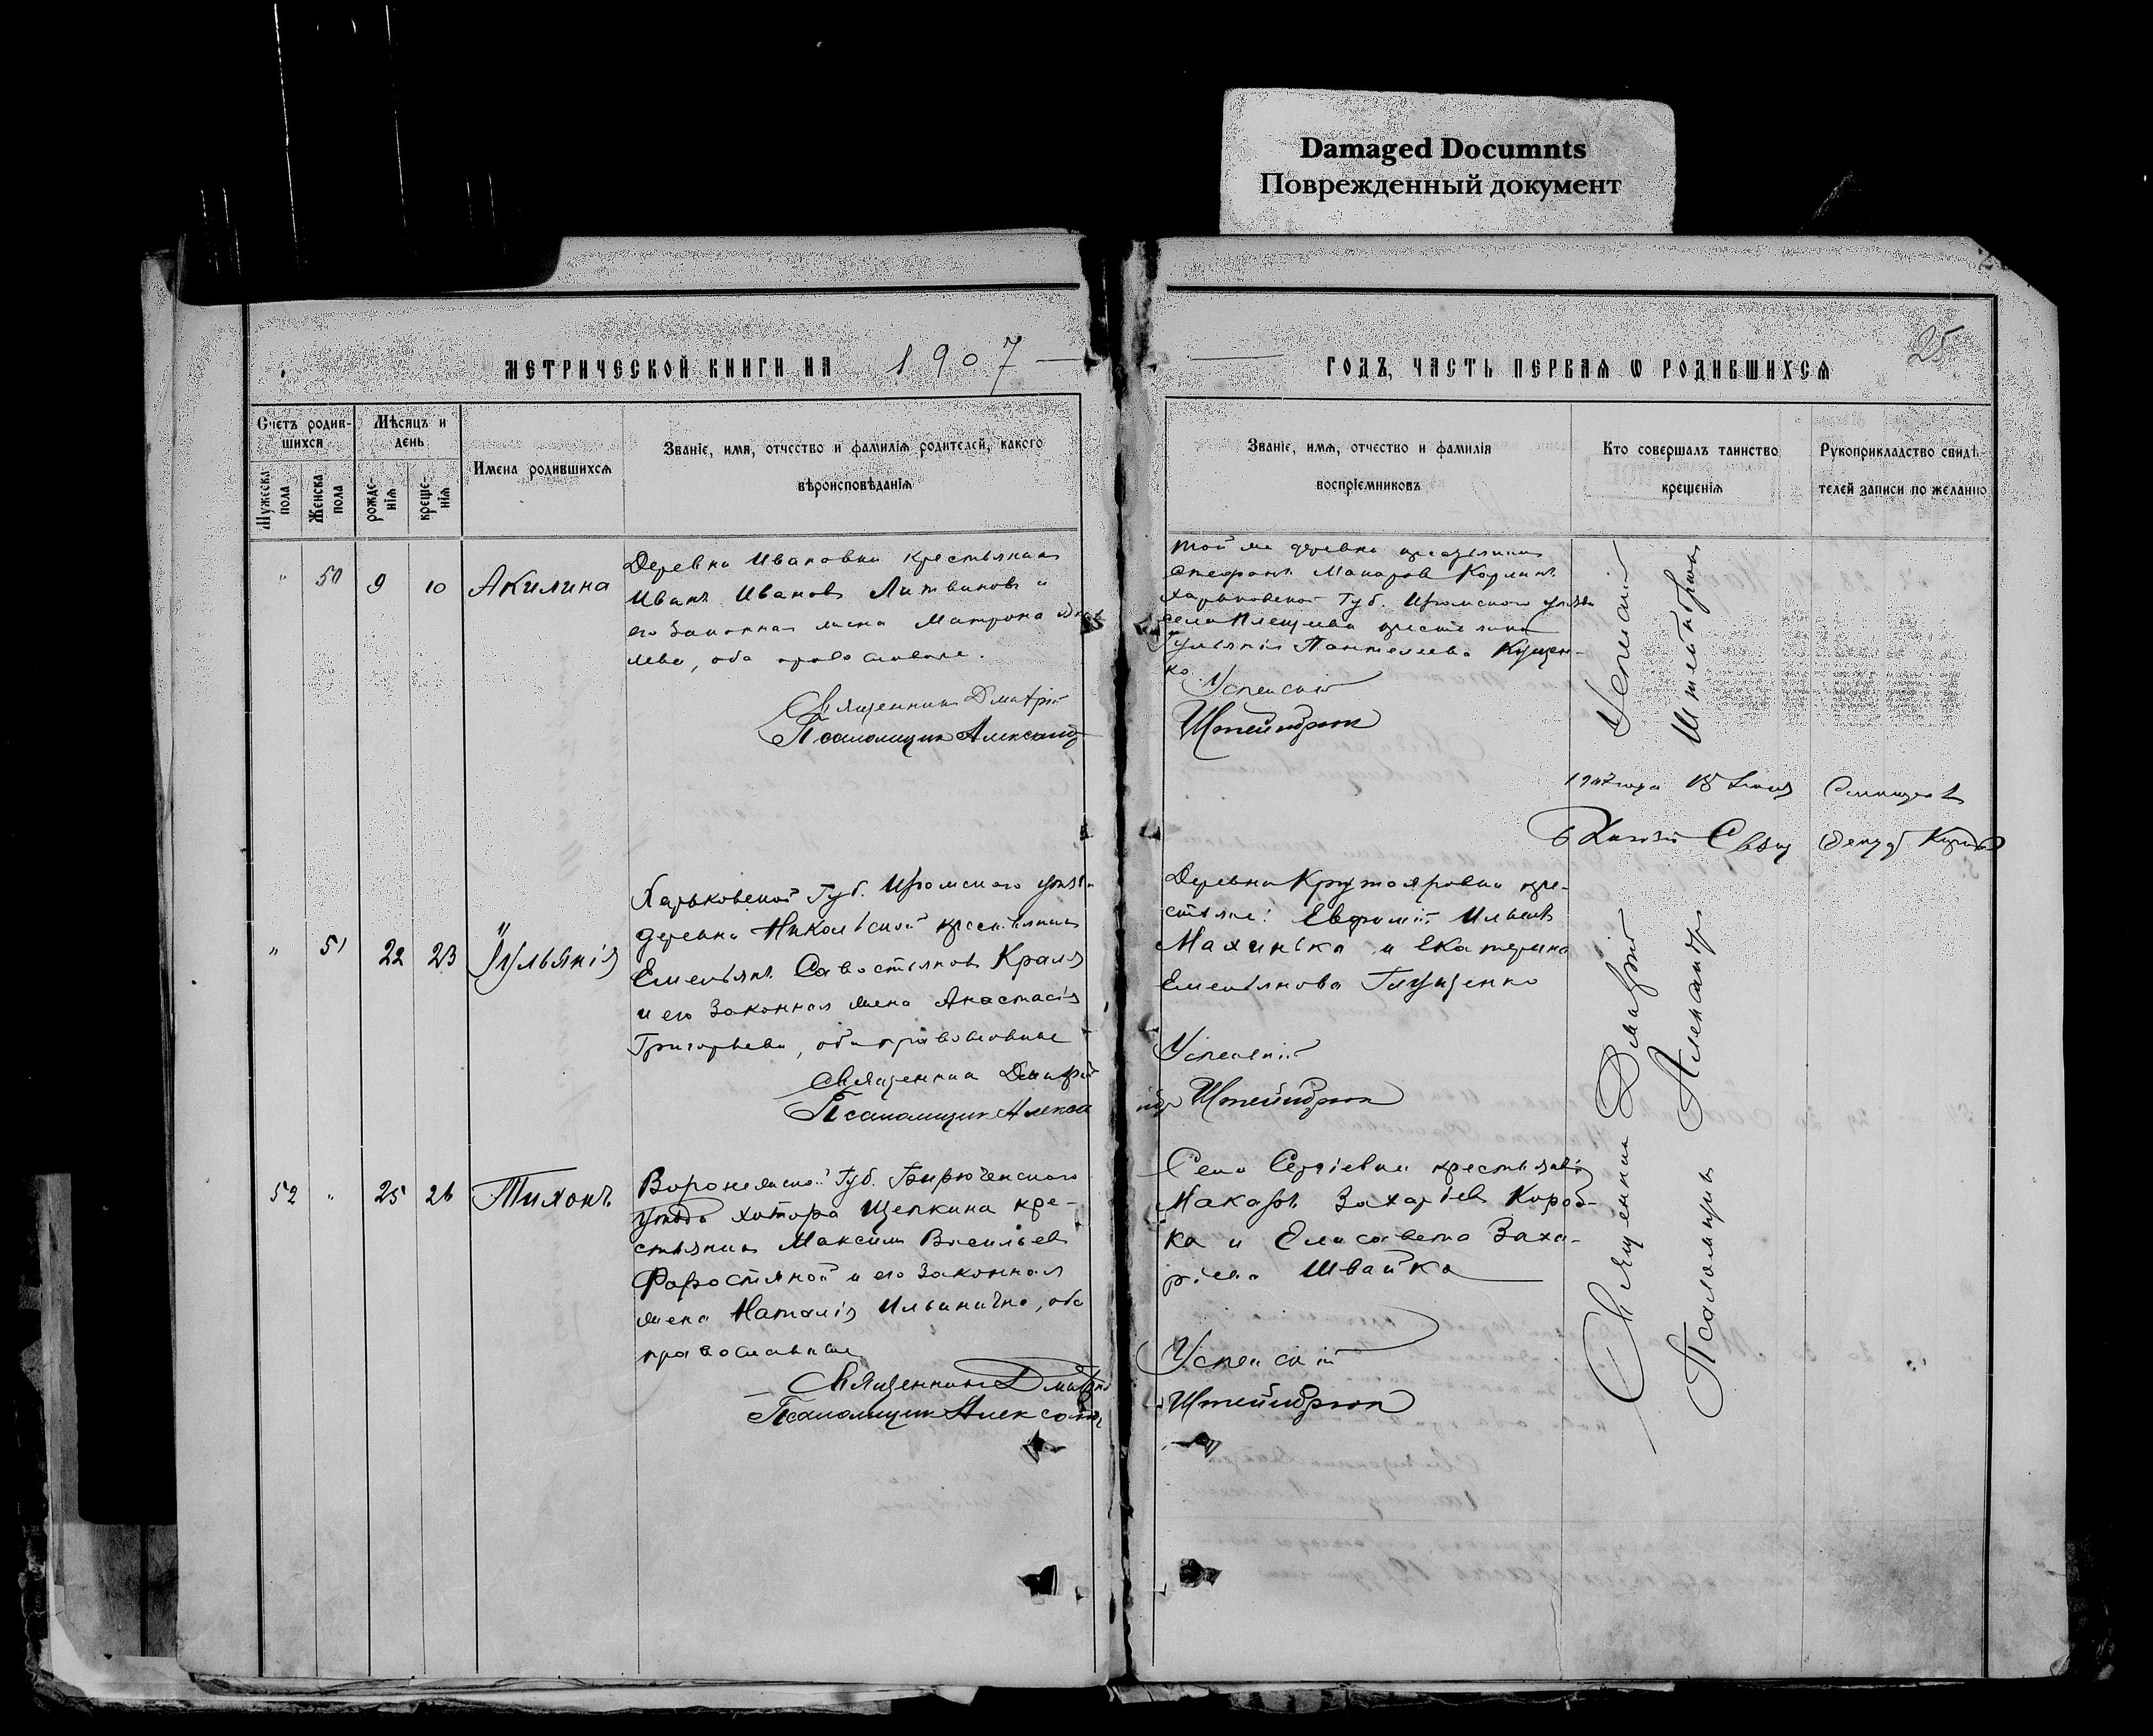 Damaged Documnts
Поврежденный документ
25
МЕТРИЧЕСКОЙ КНИГИ НА 1907
ГОДЪ, ЧАСТЬ ПЕРВАЯ Ѡ РОДИВШИХСЯ
Счетъ родив-
шихся
Мужеска
пола
Женска
пола
Мѣсяцъ и
день
рожде-
нія
креще-
нія
Имена родившихся
Званіе, имя, отчество и фамилія родителей, какого
вѣроисповѣданія
Званіе, имя, отчество и фамилія
воспріемниковъ
Кто совершалъ таинство
крещенія
Рукоприкладство свидѣ-
телей записи по желанію
" 50 9 10 Акилина
Деревни Ивановки крестьянинъ
Иванъ Ивановъ Литвиновъ и
его законная жена Матрона
оба православные.
Священникъ Дмитрій
Псаломщикъ Александ
той же деревни крестьянинъ
Стефанъ Макаровъ
Харьковской Губ. Изюмскаго уѣзда
села крестьянка
Іуліянія Пантелеева Куцен-
ко.
Успенскій
Штейндрокъ
1907 года
" 51 22 23 Іульянія
Харьковской Губ. Изюмскаго уѣзда
деревни Никольской крестьянинъ
Емельянъ Савостьяновъ Краля
и его законная жена Анастасія
Григорьева, оба православные
Священникъ Дмитрій
Псаломщикъ Алекса
Деревни Крутояровки кре-
стьяне: Евфимій Ильинъ
Махинька и Екатерина
Емельянова Глущенко
Успенскій
ндръ Штейндрокъ
52 " 25 26 Тихонъ
Воронежской Губ. Бирюченскаго
уѣзда хутора Щепкина кре-
стьянинъ Максимъ Васильевъ
Форостяной и его законная
жена Наталія Ильинична, оба
православные
Священникъ Дмитрій
Псаломщикъ Александ
Села Сергіевки крестьяне
Макаръ Захаріевъ Короб-
ка и Елисавета Заха-
ріева Швайка
Успенскій
Штейндрокъ
Священникъ Дмитрій Успенскій
Псаломщикъ Александръ Штейндрокъ